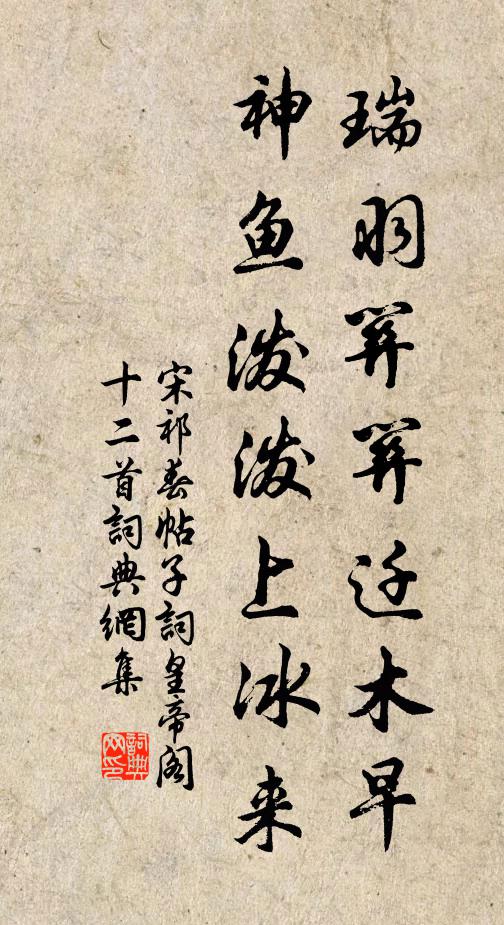 瑞羽关关迁木早
神鱼泼泼上冰来
宋祁春帖子詞皇帝阁
十二首詞典網集
詞典网印